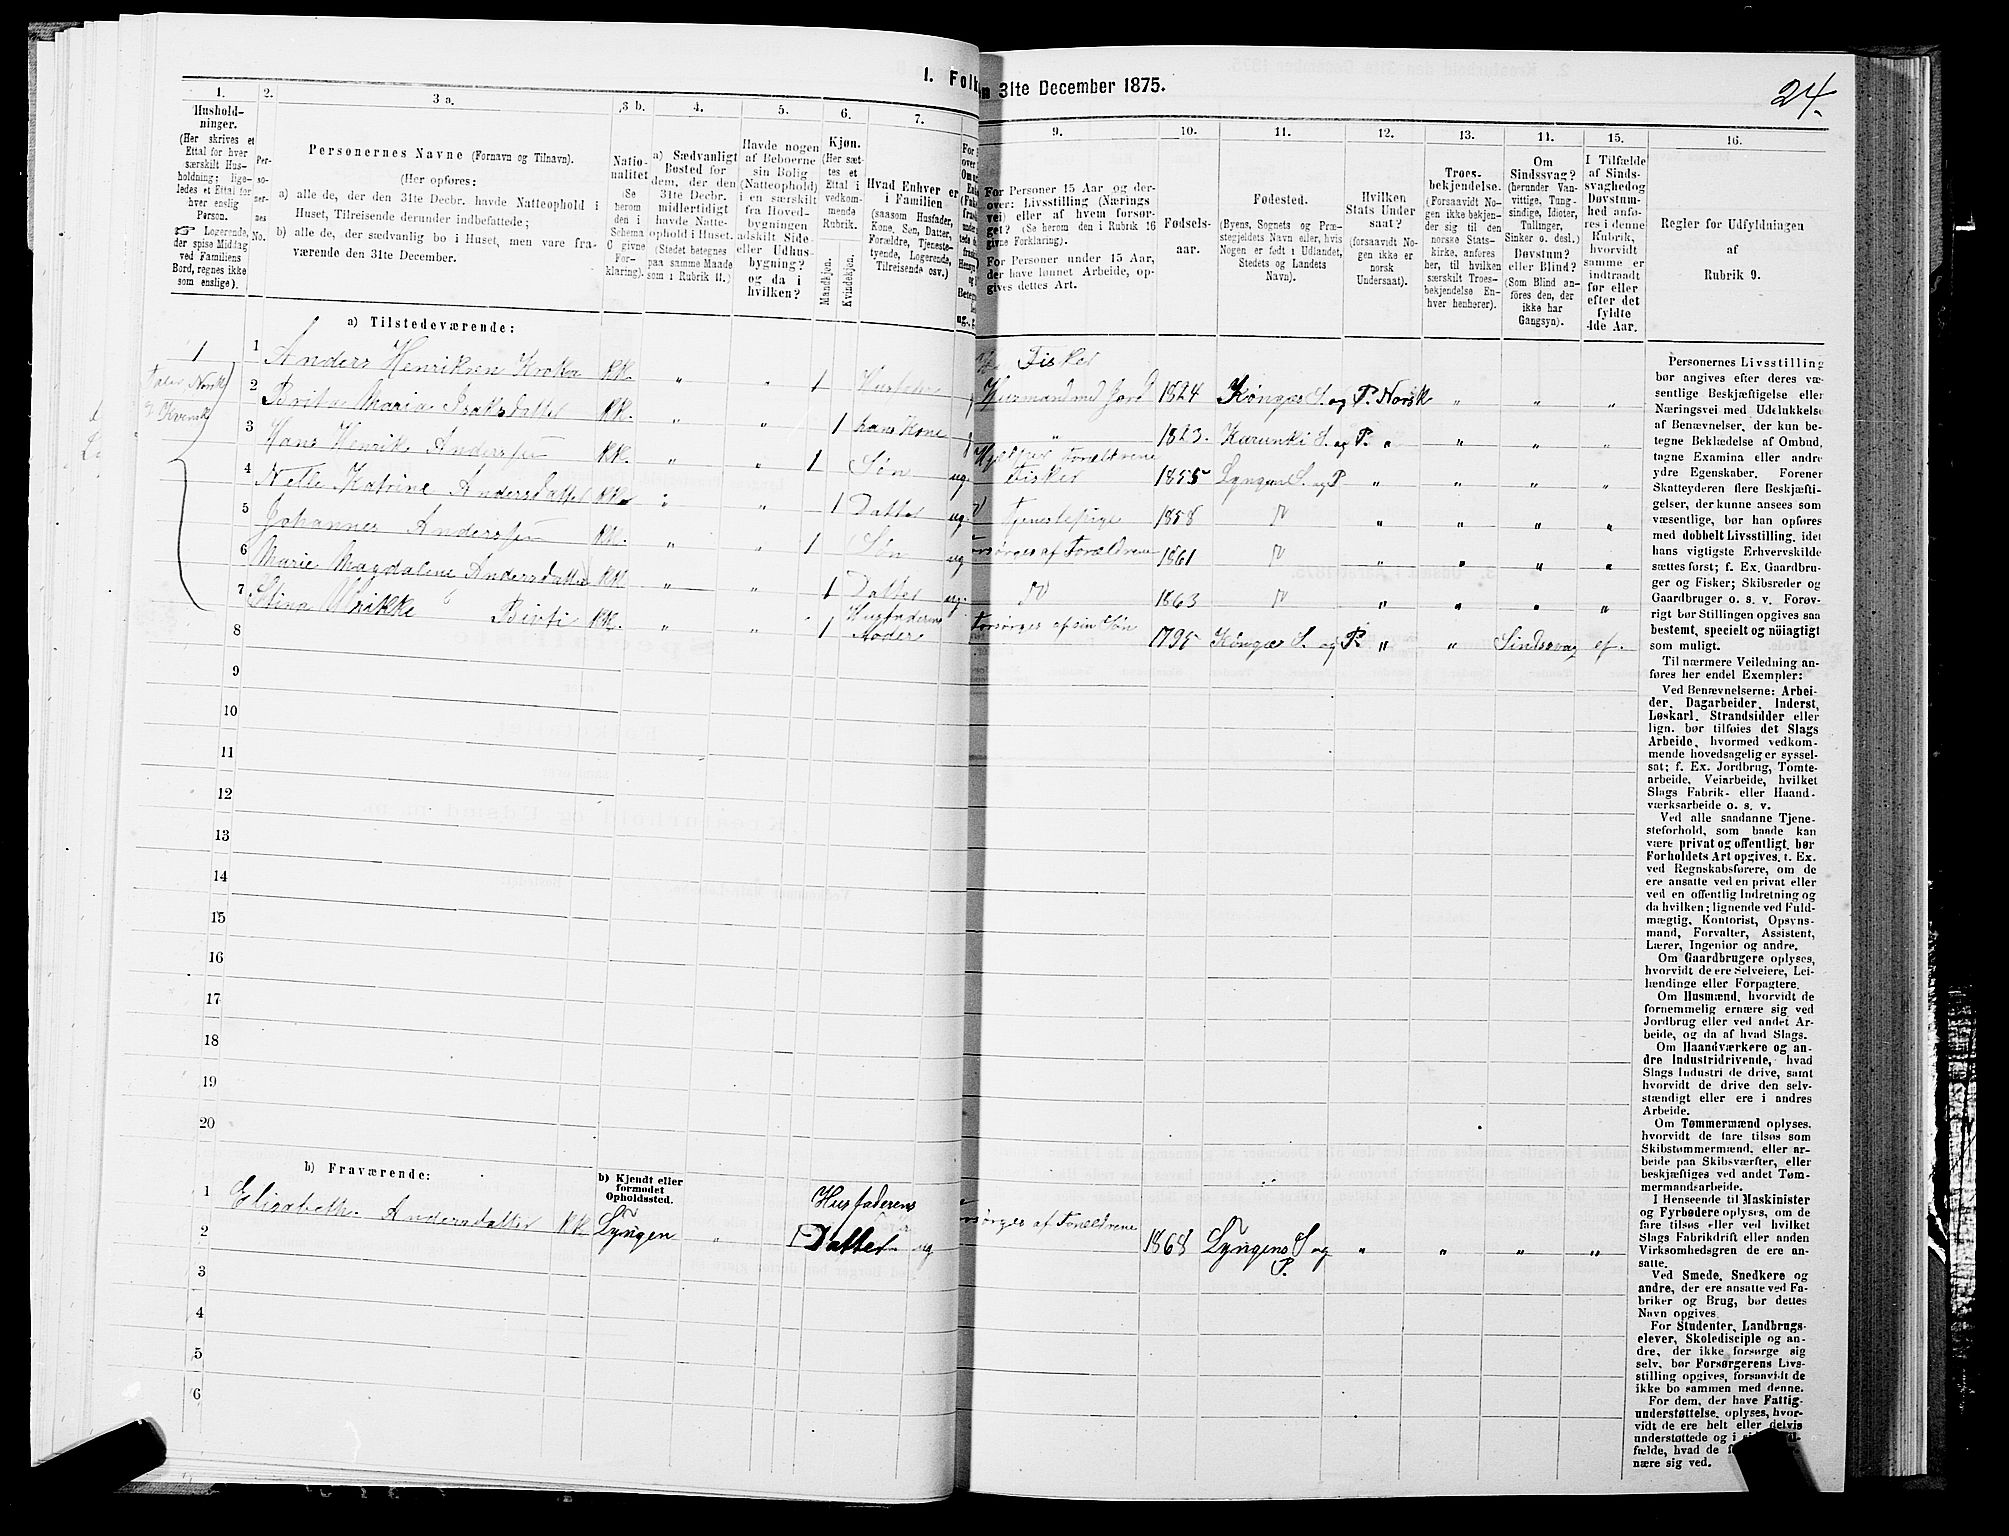 1. Folk
n 31te December 1875.
24.
1.
Hushold-
ninger.
(Her skrives et
Ettal for hver
særskilt Hus-
holdning; lige-
ledes et Ettal for
hver enslig
Person.
☞ Logerende,
der spise Middag
ved Familiens
Bord, regnes ikke
som enslige).
2.
Per-
so-
ner-
nes
No.
3 a.
Personernes Navne (Fornavn og Tilnavn).
(Her opføres:
a) alle de, der den 31te Decbr. havde Natteophold i
Huset, Tilreisende derunder indbefattede;
b) alle de, der sædvanlig bo i Huset, men vare fra-
værende den 31te December.
3 b.
Natio-
nalitet
(Se
herom
den i
Schema
O givne
For-
klaring).
4.
a) Sædvanligt
Bosted for
dem, der den
31te Decbr.
midlertidigt
havde Natte-
ophold i Huset.
(Stedet betegnes
paa samme Maade
som i Rubrik 11.)
5.
Havde nogen
af Beboerne
sin Bolig
(Natteophold)
i en særskilt
fra Hoved-
bygningen
adskilt Side-
eller Udhus-
bygning?
og da i
hvilken?
6.
Kjøn.
(Her sæt-
tes et
Ettal i
vedkom-
mende
Rubrik.
Mandkjøn.
Kvindekjøn.
7.
Hvad Enhver er
i Familien
(saasom Husfader,
Kone, Søn, Datter,
Forældre, Tjeneste-
tyende, Logerende,
Tilreisende osv.)
9.
For Personer 15 Aar og der-
over: Livsstilling (Nærings
vei) eller af hvem forsør-
get? (Se herom den i Rubrik 16
givne Forklaring).
For Personer under 15 Aar,
der have lønnet Arbeide, op-
gives dettes Art.
10.
Fødsels-
aar.
11.
Fødested.
(Byens, Sognets og Præste-
gjeldets Navn eller, hvis
Nogen er født i Udlandet,
Stedets og Landets
Navn).
12.
Hvilken
Stats Under
saat?
(forsaavidt No-
gen ikke er
norsk
Undersaat).
13.
Troes-
bekjendelse.
(Forsaavidt No-
gen ikke bekjen-
der sig til den
norske Stats-
kirke, anføres
her, til hvilken
særskilt Troes-
bekjendelse En-
hver henhører).
14.
Om
Sindssvag?
(herunder Van-
vittige, Tung-
sindige, Idioter,
Tullinger,
Sinker o. desl.)
Døvstum?
eller Blind?
(Som Blind an-
føres den, der
ikke har
Gangsyn).
15.
I Tilfælde
af Sinds-
svaghedog
Døvstum-
hed anfø-
res i denne
Rubrik,
hvorvidt
samme er
indtraadt
før eller
efter det
fyldte
4de Aar.
16.
Regler for Udfyldningen
af
Rubrik 9.
a) Tilstedeværende:
1 1 Anders Henriksen Kroka KK. " " 1 Husfader Fisker
Husmand med Jord 1824 Köngæs S. og P. Norsk " " "
Taler Norsk
& Kvensk
2 Brita Maria Isaksdatter KK. " " 1 hans Kone " 1823. Karunki S. og P. " " " "
3 Hans Henrik Anderssen KK. " " 1 Søn ug. Hjelper Forældrene
Fisker 1855 Lyngen S. og P " " " "
4 Nelle Katrine Andersdatter KK. " " 1 Datter ug. Tjenestepige 1858 " " " "
5 Johannes Anderssen KK. " " 1 Søn ug Forsørges af Forældrene 1861 " " " "
6 Marie Magdalene Andersdatter KK " " 1 Datter ug. 1863 " " " "
7 Stina Ulrikke Pirti KK. " " 1 Husfaderens
Moder Forsørges af sin Søn 1795 Köngæs S. og P. " " Sindssvag ef.
8
9
10
11
12
13
14
15
16
17
18
19
20
b) Fraværende:
b) Kjendt eller
formodet
Opholdssted.
1 Elisabeth Andersdatter KK Lyngen " 1 Husfaderens
Datter ug Forsørges af Forældrene 1868 Lyngens S og
P. " " " "
2
3
4
5
6
Personernes Livsstilling
bør angives efter deres væ-
sentlige Beskjæftigelse eller
Næringsvei med Udelukkelse
af Benævnelser, der kun be-
tegne Beklædelse af Ombud,
tagne Examina eller andre
ydre Egenskaber. Forener
Skatteyderen flere Beskjæfti-
gelser, der kunne ansees som
væsentlige, bør han opføres
med dobbelt Livsstilling, idet
hans vigtigste Erhvervskilde
sættes først; f. Ex. Gaardbru-
ger og Fisker; Skibsreder og
Gaardbruger o. s. v. Forøv-
rigt bør Stillingen opgives saa
bestemt, specielt og nöiagtigt
som muligt.
Til nærmere Veiledning an-
føres her endel Exempler:
Ved Benævnelserne: Arbei-
der, Dagarbeider, Inderst,
Løskarl, Strandsidder eller
lign. bør tilføies det Slags
Arbeide, hvormed vedkom-
mende hovedsagelig er syssel-
sat; f. Ex. Jordbrug, Tomte-
arbeide, Veiarbeide, hvilket
Slags Fabrik- eller Haand-
værksarbeide o. s. v.
Ved alle saadanne Tjene-
steforhold, som baade kan
være privat og offentligt, bør
Forholdets Art opgives, f. Ex.
ved Regnskabsførere, om de
ere ansatte ved en privat eller
ved en offentlig Indretning og
da hvilken; lignende ved Fuld-
mægtig, Kontorist, Opsyns-
mand, Forvalter, Assistent,
Lærer, Ingeniør og andre.
Om Gaardbrugere oplyses,
hvorvidt de ere Selveiere, Lei-
lændinge eller Forpagtere.
Om Husmænd, hvorvidt de
fornemmelig ernære sig ved
Jordbrug eller ved andet Ar-
beide, og da af hvad Slags.
Om Haandværkere og an-
dre Industridrivende, hvad
Slags Industri de drive, samt
hvorvidt de drive den selv-
stændigt eller ere i andres
Arbeide.
Om Tømmermænd oplyses,
hvorvidt de fare tilsøs som
Skibstømmermænd, eller ar-
beide paa Skibsværfter, eller
beskjæftiges ved andet Tøm-
mermandsarbeide.
I Henseende til Maskinister
og Fyrbødere oplyses, om de
fare tilsøs eller ved hvilket
Slags Fabrikdrift eller anden
Virksomhedsgren de ere an-
satte.
Ved Smede, Snedkere og
andre, der ere ansatte ved Fa-
briker og Brug, bør dettes
Navn opgives.
For Studenter, Landbrugs-
elever, Skoledisciple og an-
dre, der ikke forsørge sig
selv, bør Forsørgerens Livs-
stilling opgives, forsaavidt de
ikke bo sammen med denne.
For dem, der have Fattig-
understøttelse, oplyses, hvor-
vidt de ere helt eller delvis
understøttede og i
fælde, hvad de
nære sig ved.